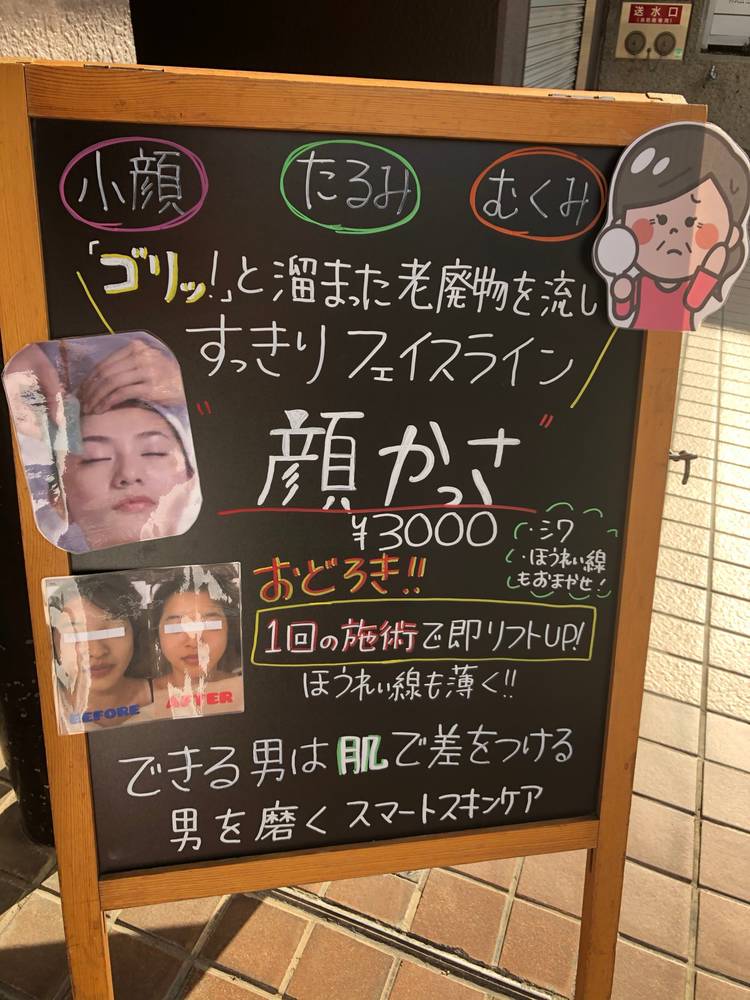 送水口
小顔 たるみ むくみ
「ゴリッ!」と溜まった老廃物を流し
すっきりフェイスライン
"顔かっさ"
¥3000
・シワ
・ほうれい線
もおまかせ!
おどろき!!
1回の施術で即リフトUP!
ほうれい線も薄く!!
BEFORE AFTER
できる男は肌で差をつける
男を磨くスマートスキンケア